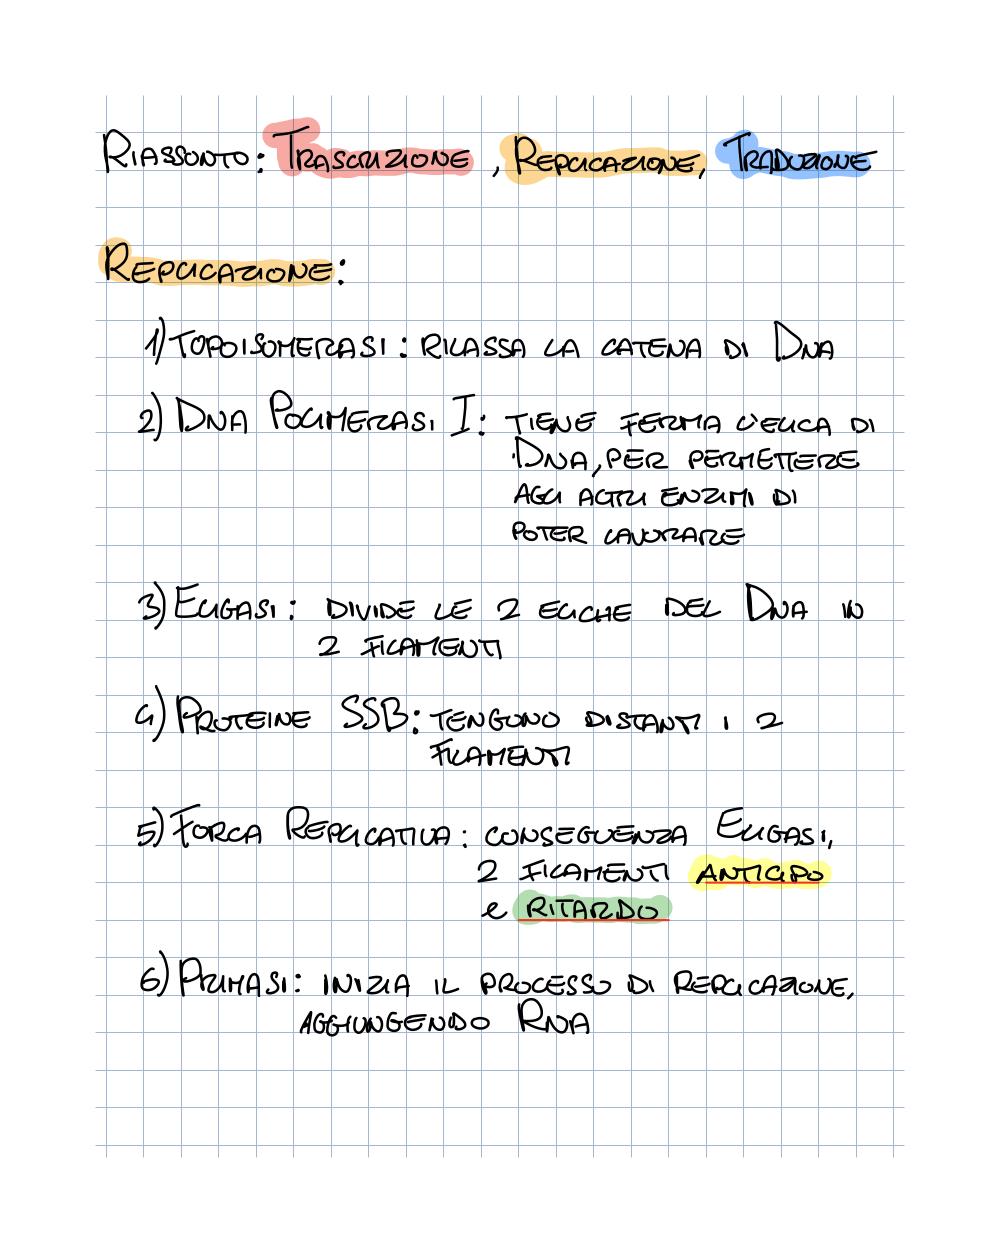 RIASSUNTO: TRASCRIZIONE, REPLICAZIONE, TRADUZIONE
REPLICAZIONE:
1) TOPOISOMERASI: RILASSA LA CATENA DI DNA
2) DNA POLIMERASI I: TIENE FERMA L'ELICA DI
DNA, PER PERMETTERE
AGLI ALTRI ENZIMI DI
POTER LAVORARE
3) ELIGASI: DIVIDE LE 2 ELICHE DEL DNA IN
2 FILAMENTI
4) PROTEINE SSB: TENGONO DISTANTI I 2
FILAMENTI
5) FORCA REPLICATIVA: CONSEGUENZA ELIGASI,
2 FILAMENTI ANTICIPO
e RITARDO
6) PRIMASI: INIZIA IL PROCESSO DI REPLICAZIONE,
AGGIUNGENDO RNA